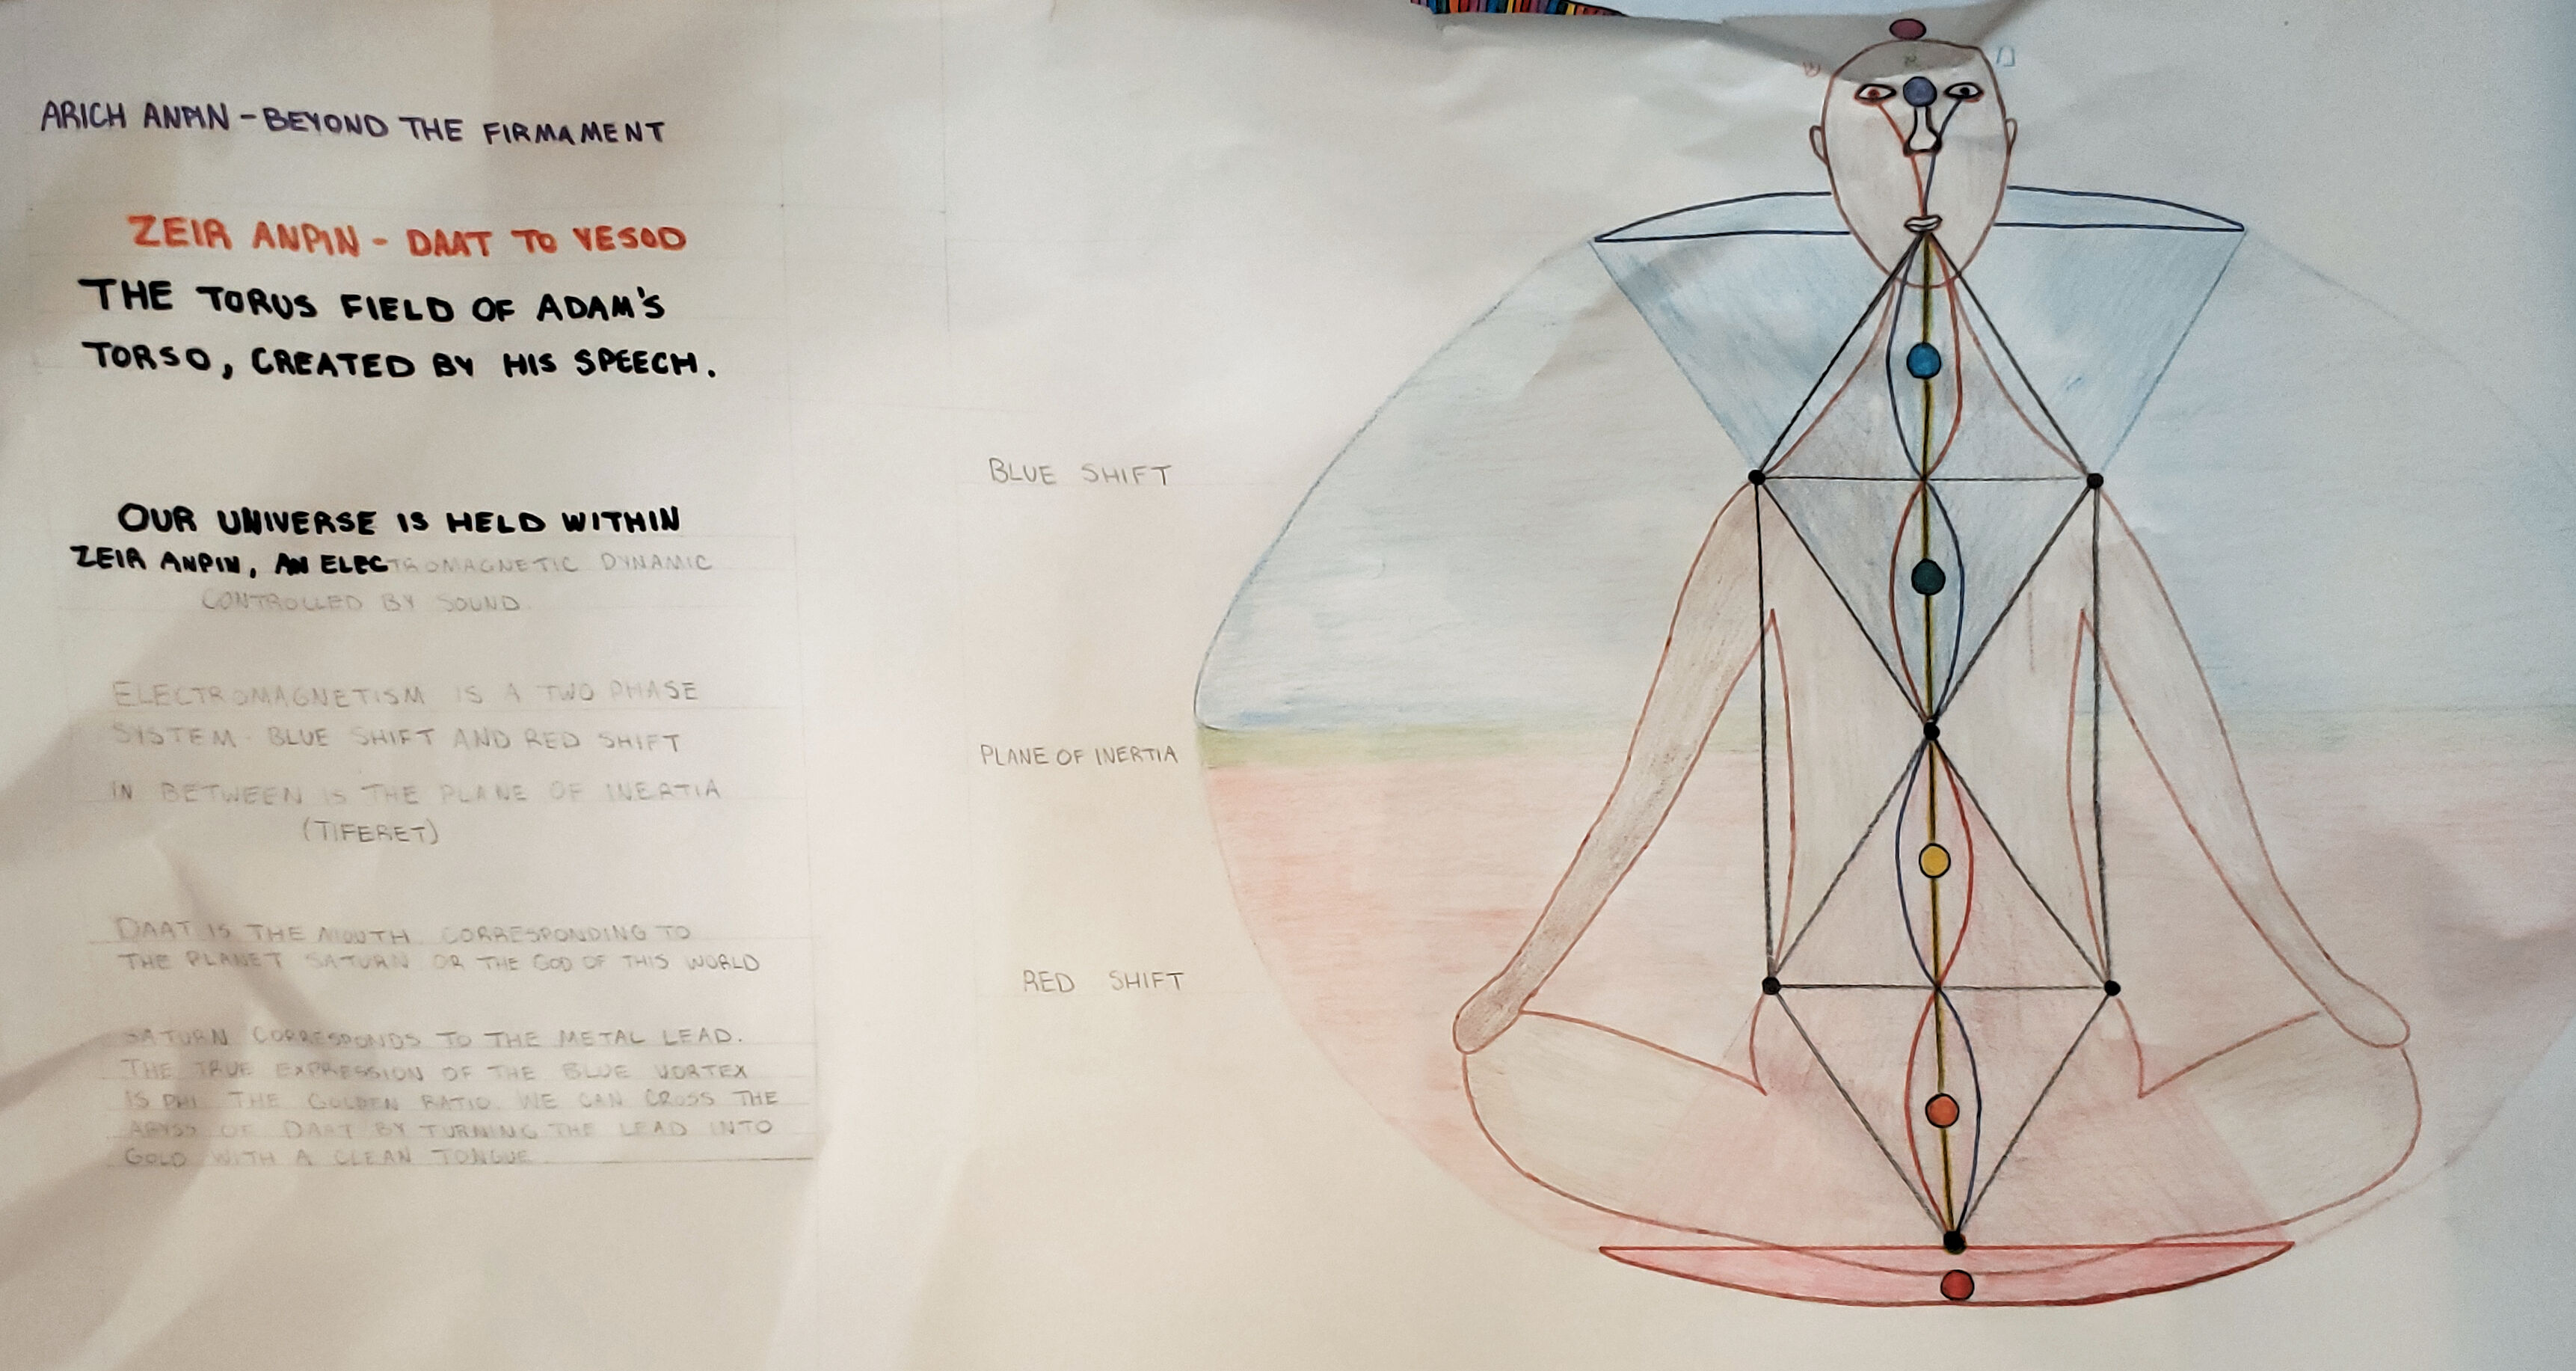 ARICH ANPIN - BEYOND THE FIRMAMENT
ZEIR ANPIN - DAAT TO YESOD
THE TORUS FIELD OF ADAM'S
TORSO, CREATED BY HIS SPEECH.
OUR UNIVERSE IS HELD WITHIN
ZEIR ANPIN, AN ELECTROMAGNETIC DYNAMIC
CONTROLLED BY SOUND.
ELECTROMAGNETISM IS A TWO PHASE
SYSTEM - BLUE SHIFT AND RED SHIFT
IN BETWEEN IS THE PLANE OF INERTIA
(TIFERET)
DAAT IS THE MOUTH CORRESPONDING TO
THE PLANET SATURN OR THE GOD OF THIS WORLD
SATURN CORRESPONDS TO THE METAL LEAD.
THE TRUE EXPRESSION OF THE BLUE VORTEX
IS PHI THE GOLDEN RATIO. WE CAN CROSS THE
ABYSS OF DAAT BY TURNING THE LEAD INTO
GOLD WITH A CLEAN TONGUE
BLUE SHIFT
PLANE OF INERTIA
RED SHIFT
ש